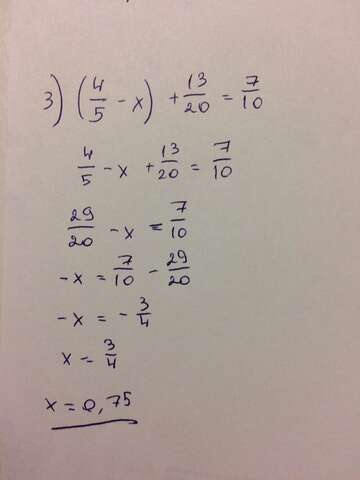 3) (4/5 - x) + 13/20 = 7/10
4/5 - x + 13/20 = 7/10
29/20 - x = 7/10
-x = 7/10 - 29/20
-x = - 3/4
x = 3/4
x = 0,75